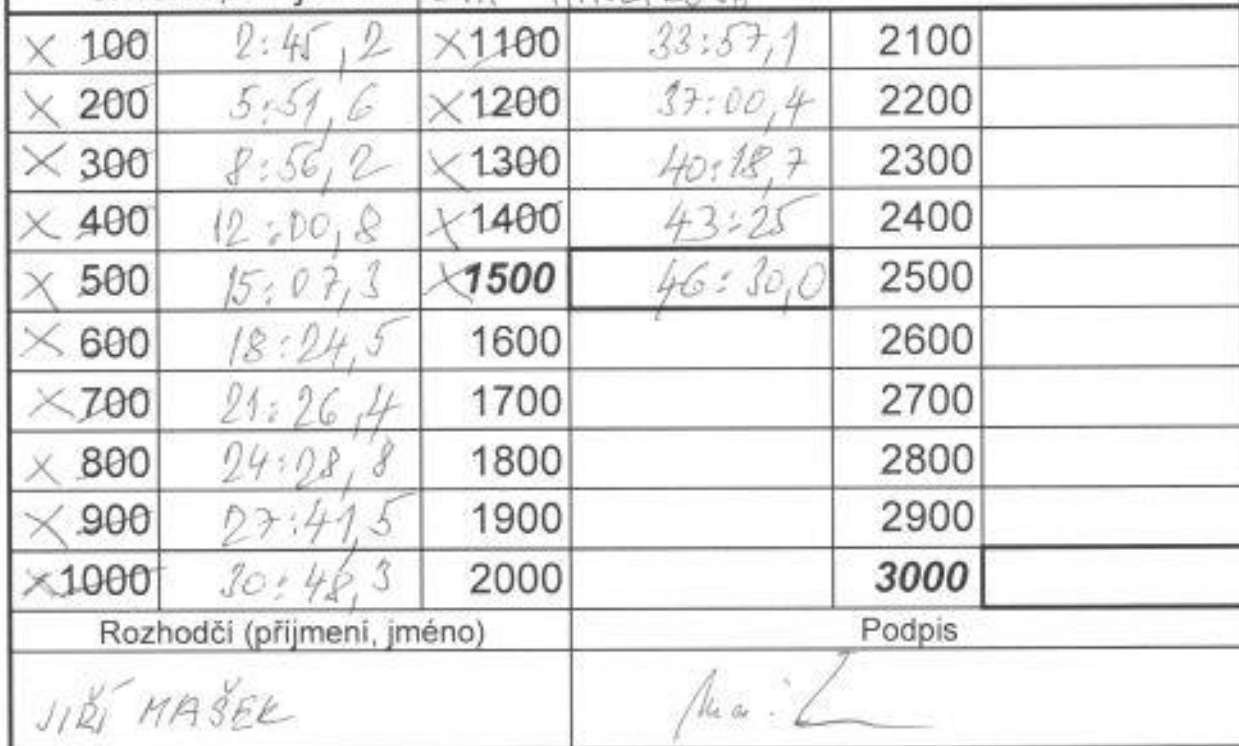 × 100 2:45,2 ×1100 33:57,1 2100
× 200 5:51,6 ×1200 37:00,4 2200
× 300 8:56,2 ×1300 40:18,7 2300
× 400 12:00,8 ×1400 43:25 2400
× 500 15:07,3 ×1500 46:30,0 2500
× 600 18:24,5 1600 2600
× 700 21:26,4 1700 2700
× 800 24:28,8 1800 2800
× 900 27:41,5 1900 2900
×1000 30:48,3 2000 3000
Rozhodčí (příjmení, jméno) Podpis
JIŘÍ MAŠEK